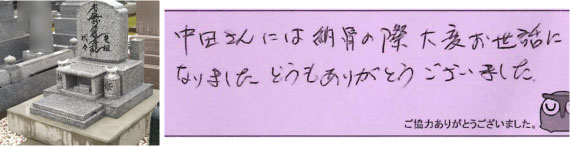 中田さんには納骨の際大変お世話に
なりました どうもありがとうございました.
ご協力ありがとうございました。